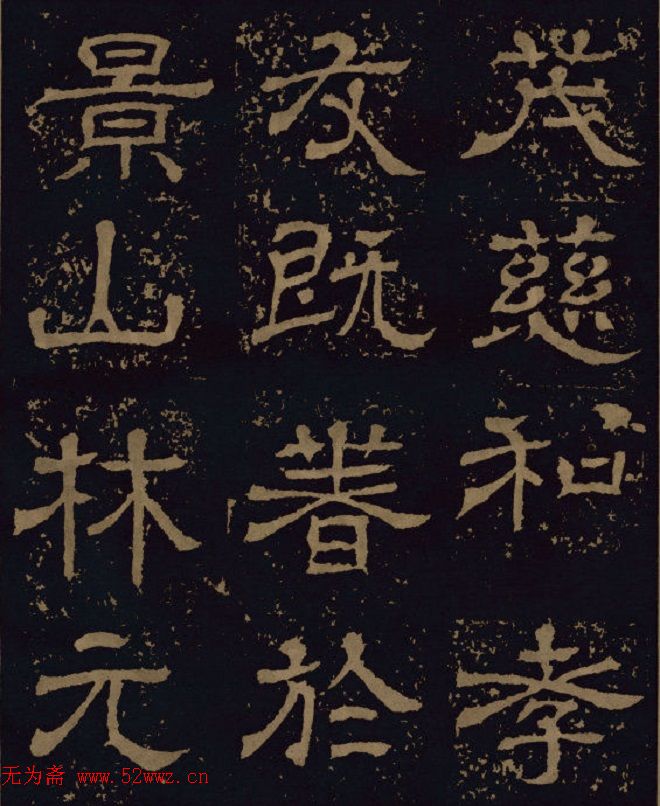 茂慈和孝
友既著於
景山林元
无为斋 www.52wwz.cn